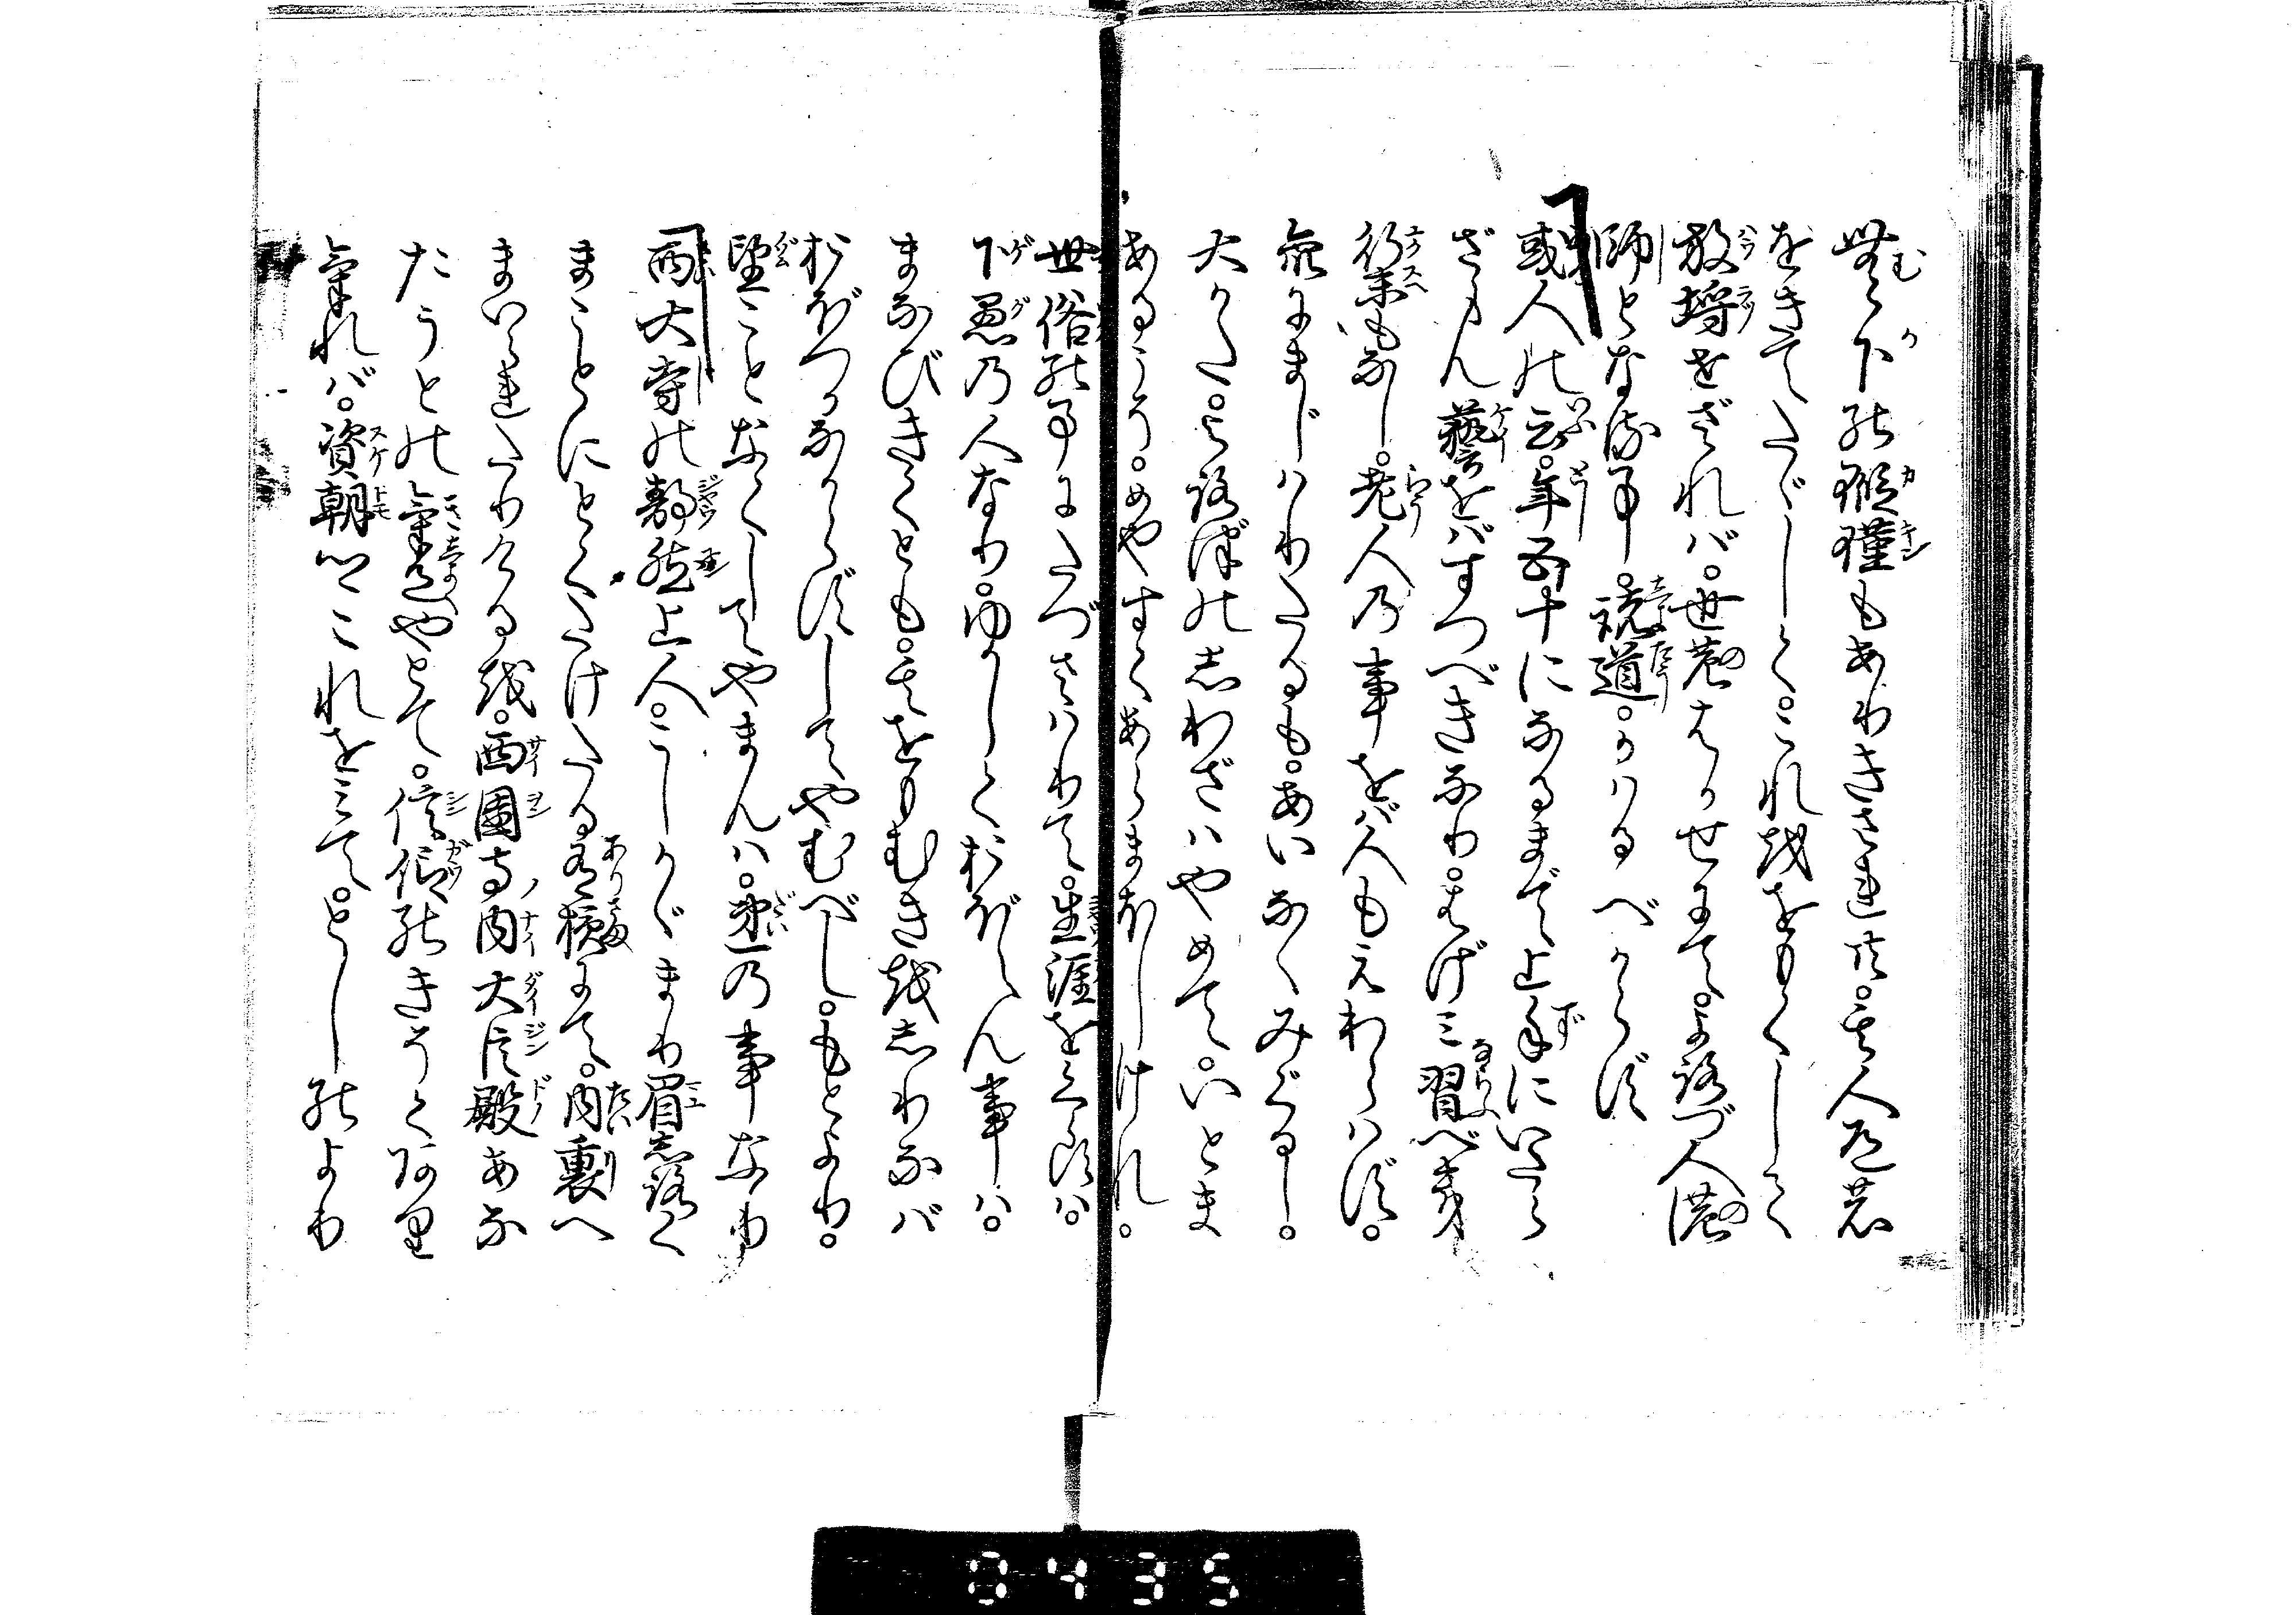 無下の瑕瑾もありきされ共。其人道の
をきてたゞしく。これををもくして
放埒せざれバ。世のはかせにて。よろづ人の
師となる事。諸道。かはるべからず
或人の云。年五十になるまで上手にいたら
ざらん藝をバすつべきなり。はげミ習べき
行末もなし。老人の事をバ人もえわらハず。
衆にまじハりたるも。あいなくみぐるし。
大かた。よろづのしわざハやめて。いとま
あるこそ。めやすくあらまほしけれ。
世俗の事にたづさハりて。生涯をくらすハ。
下愚の人なり。ゆかしくおぼえん事ハ。
まなびきくとも。其をもむきをしりなバ
おぼつかなからずしてやむべし。もとより。
望ことなくしてやまんハ。第一の事なり
西大寺の静然上人。こしかゞまり眉しろく
まことにとくたけたる有様にて。内裏へ
まいられたりけるを。西園寺内大臣殿あな
たうとの氣色やとて。信仰のきそくあり
氣れバ。資朝卿これをミて。としのより
0435